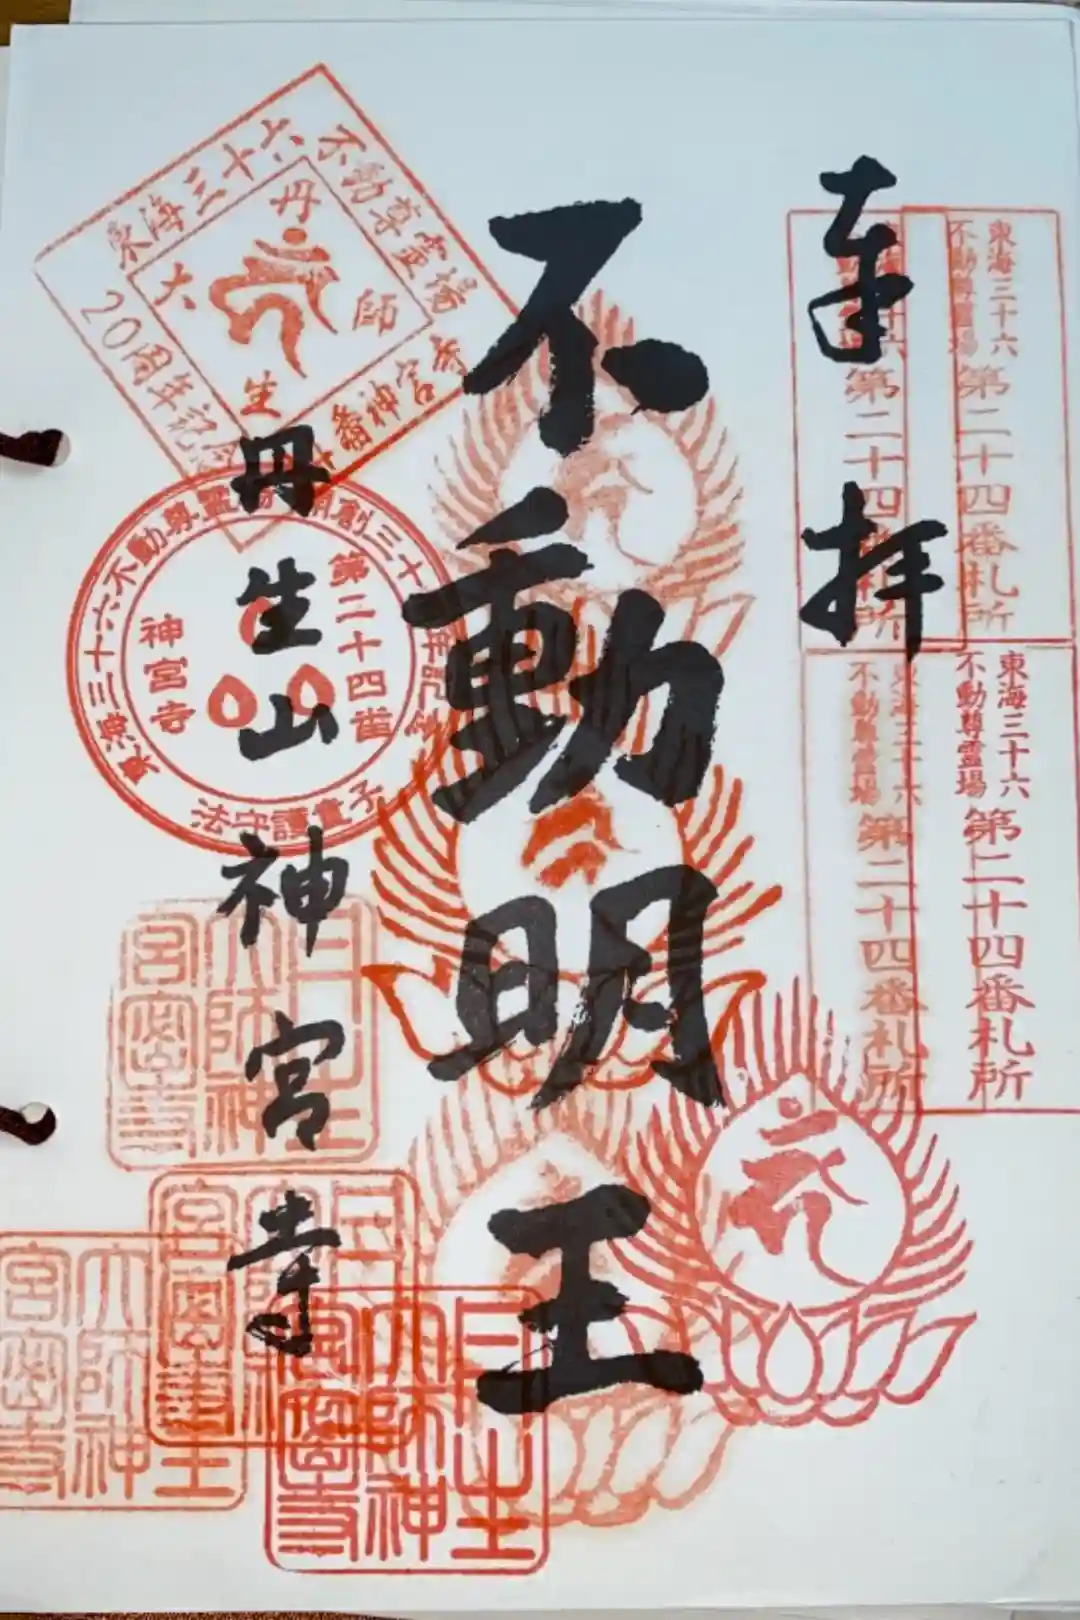 奉拝
東海三十六
不動尊霊場
第二十四番札所
東海三十六
不動尊霊場
第二十四番札所
東海三十六
不動尊霊場
第二十四番札所
第二十四番札所
不動明王
東海三十六不動尊霊場
番神宮寺
20周年記念
丹生大師
東海三十六不動尊霊場開創三十年記念
第二十四番
神宮寺
子貴護守法
丹生山神宮寺
丹生
大師神
宮寺
丹生
大師神
宮寺
丹生
大師神
宮寺
丹生
大師神
宮寺